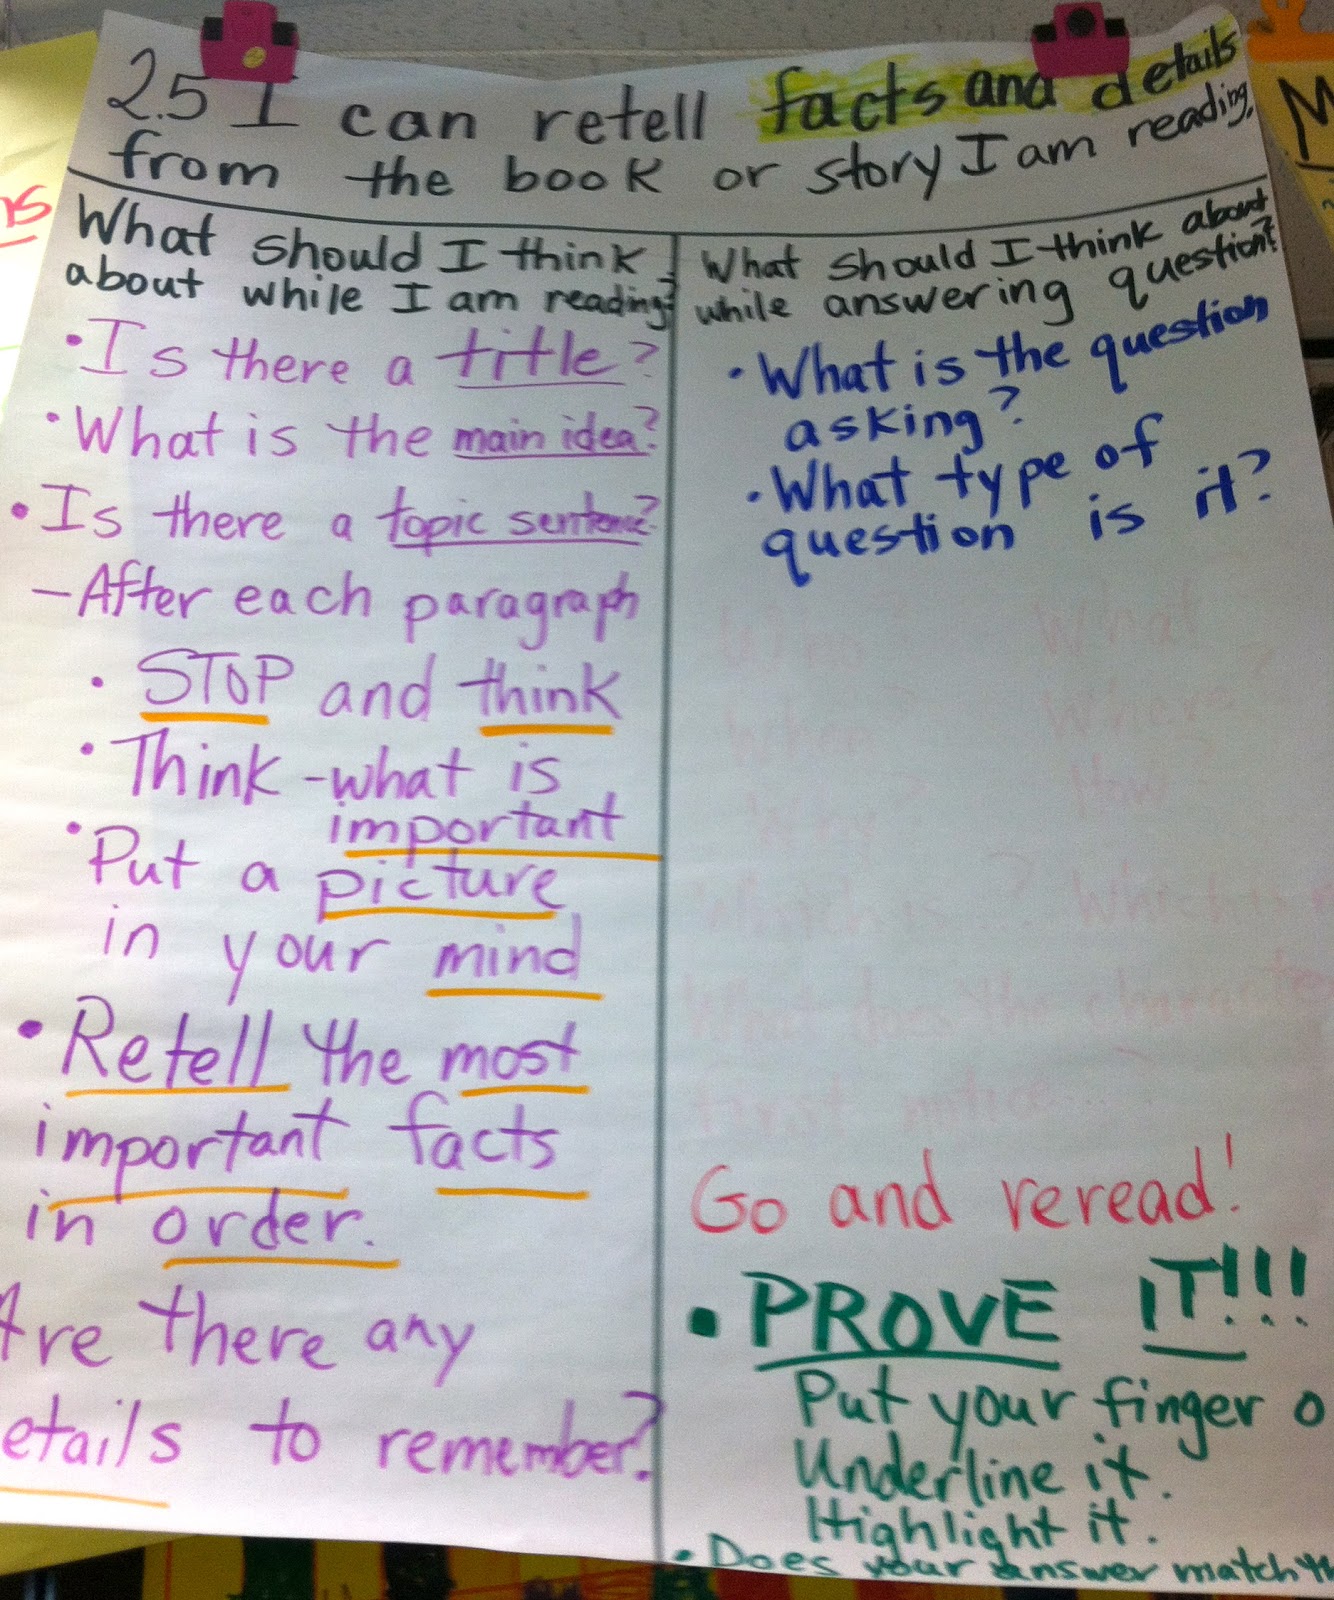 2.5 I can retell facts and details
from the book or story I am reading.
What should I think
about while I am reading?
• Is there a title?
• What is the main idea?
• Is there a topic sentence?
- After each paragraph
• STOP and think
• Think - what is
important
• Put a picture
in your mind
• Retell the most
important facts
in order.
Are there any
etails to remember?
What should I think about
while answering question?
• What is the question
asking?
• What type of
question is it?
What
When
Where
Why
How
Go and reread!
• PROVE IT!!!
Put your finger o
Underline it.
Highlight it.
• Does your answer match